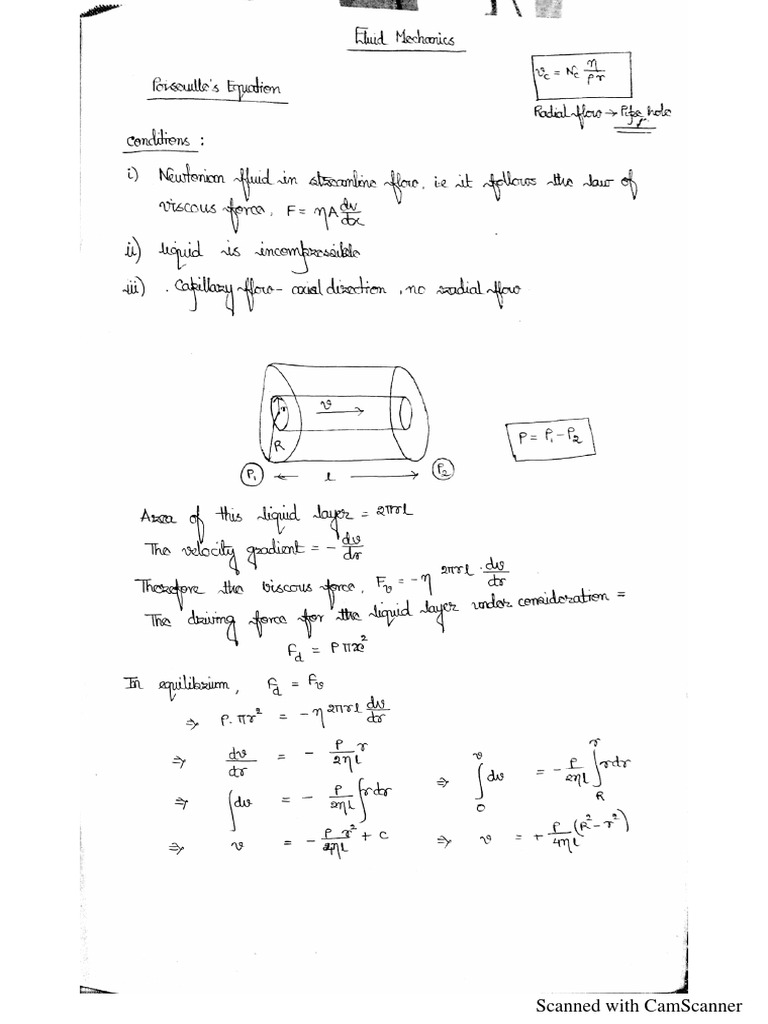 Fluid Mechanics
v_c = N_c η/ρr
Poiseuille's Equation
Radial flow → Pipe hole
Conditions :
i) Newtonian fluid in streamline flow, i.e it follows the law of
viscous force, F = ηA dv/dx
ii) liquid is incompressible
iii) . Capillary flow - axial direction, no radial flow
r
v
R
P₁
l
P₂
P = P₁ - P₂
Area of this liquid layer = 2πrl
The velocity gradient = - dv/dr
Therefore the viscous force, F_v = -η 2πrl . dv/dr
The driving force for the liquid layer under consideration =
F_d = Pπr²
In equilibrium, F_d = F_v
⇒ P.πr² = -η 2πrl dv/dr
⇒ dv/dr = - P/2ηl r
⇒ ∫dv = - P/2ηl ∫rdr
⇒ v = - P r²/4ηl + c
⇒ ∫₀^v dv = - P/2ηl ∫_R^r rdr
⇒ v = + P/4ηl (R² - r²)
Scanned with CamScanner